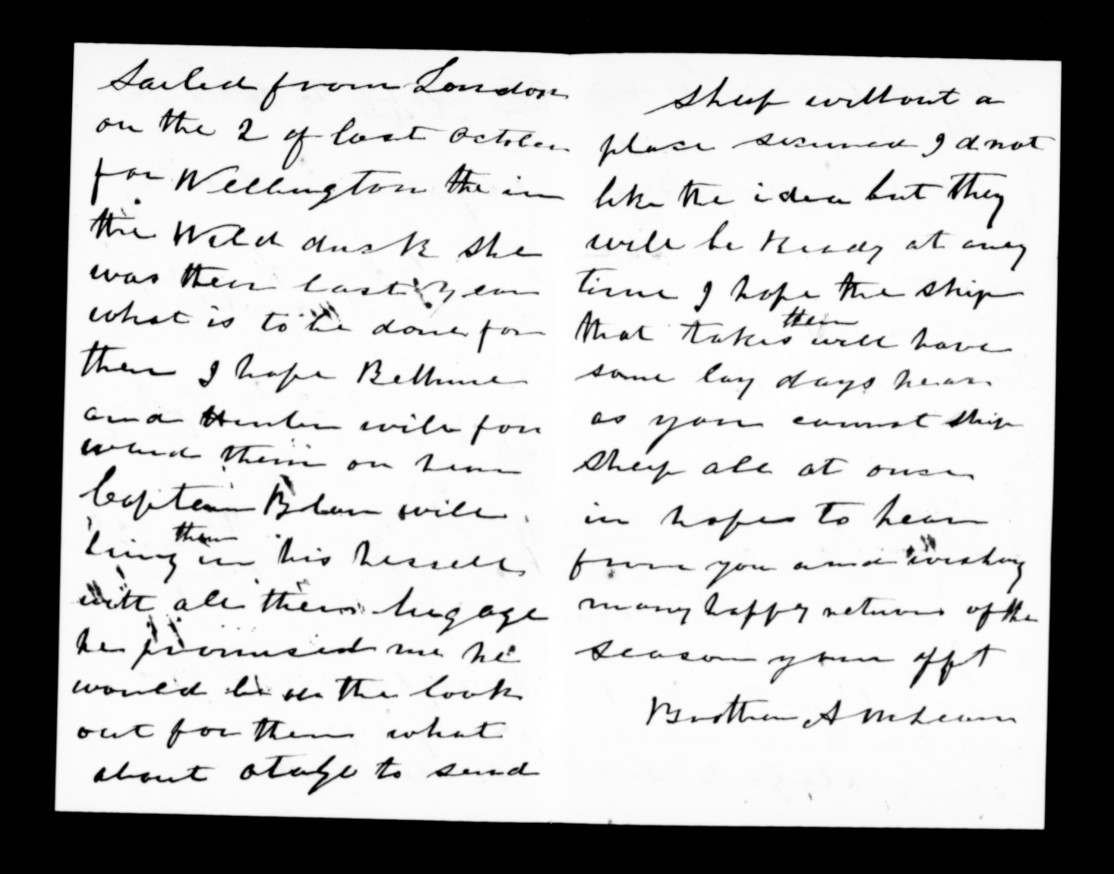 Sailed from London
on the 2 of last October
for Wellington the in
the Wild duck she
was then last year
what is to be done for
them I hope Bethune
and Hunter will for
ward them on hear
Captain Bolan will
bring them in his vessell
with all there lugage
he promised me he
would be on the look
out for them what
about otago to send
sheep without a
place secured I d not
like the idea but they
will be ready at any
time I hope the ship
that takes them will have
some lay days hear
as you cannot ship
sheep all at once
in hopes to hear
from you and wishing
many happy returns of the
season your afft
Brother A McLean